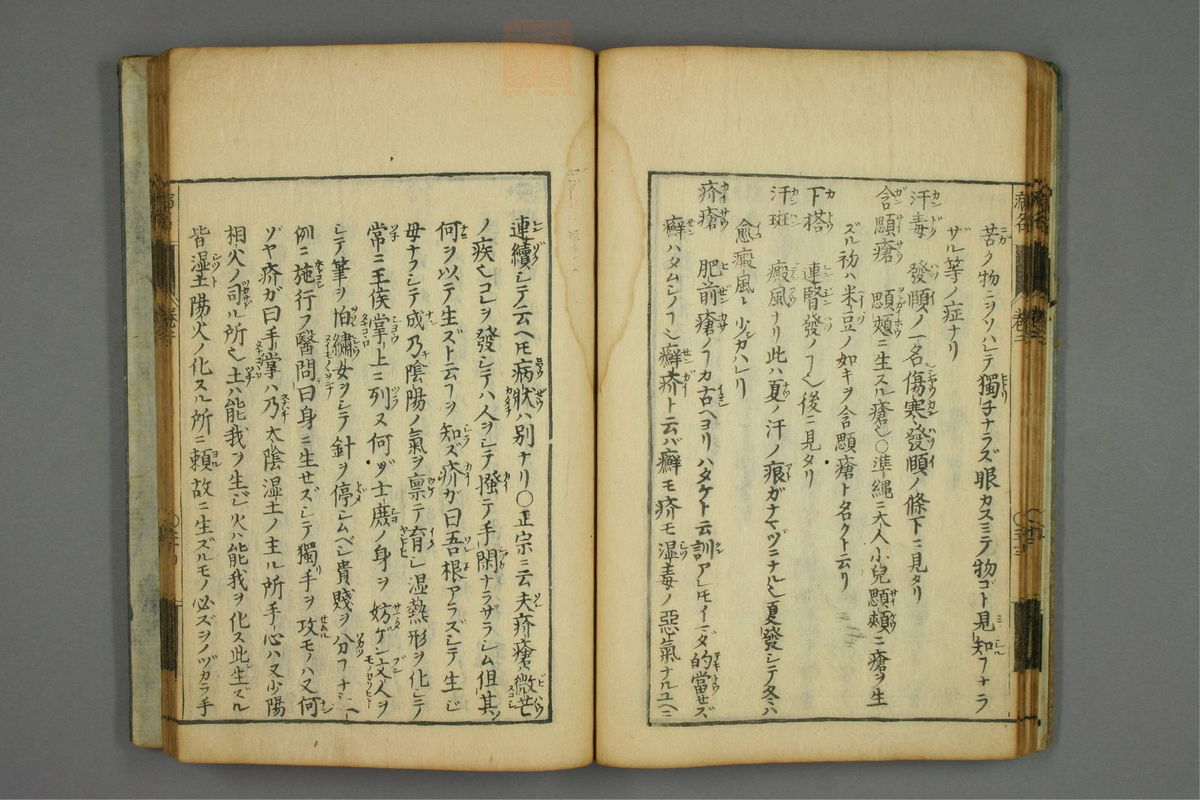 苦ク物ニヲソハレテ獨子ナラズ眼カスミテ物ゴト見知フナラ
ザル等ノ症ナリ
汗毒 發頤ノ一名傷寒發頤ノ條下ニ見タリ
含顋瘡 顋頰ニ生スル瘡也〇準繩ニ大人小兒顋頰ニ瘡ヲ生
ズル初ハ米豆ノ如キヲ含顋瘡ト名クト云リ
下搭 連腎發ノ𠃍也後ニ見タリ
汗斑 癜風ナリ此ハ夏ノ汗ノ痕ガナマヅニナル也夏發シテ冬ハ
愈癜風ト少カハレリ
疥瘡 肥前瘡ノ𠃍カ古ヘヨリハタケト云訓アレ𪜈イマダ的當セズ
癬ハタムシノ𠃍也癬疥ト云バ癬モ疥モ湿毒ノ惡氣ナルユヘニ
連續シテ云ヘ𪜈病状ハ别ナリ〇正宗ニ云夫疥瘡ハ微芒
ノ疾也コレヲ發シテハ人ヲシテ搔テ手閑ナラザラシム但其
何ヲ以テ生ズト云フヲ知ズ疥ガ曰吾根アラズシテ生じ
母ナクシテ成乃陰陽ノ氣ヲ禀テ育シ湿熱形ヲ化シテ
常ニ王侯掌上ニ列ス何ゾ士庻ノ身ヲ妨ゲン文人ヲ
シテ筆ヲ怕繡女ヲシテ針ヲ停シムベシ貴賤ヲ分フナシ
例ニ施行フ醫問曰身ニ生セズシテ獨手ヲ攻モノハ又何
ゾヤ疥ガ曰手掌ハ乃太陰湿土ノ主ル所手心ハ又少陽
相火ノ司ル所也土ハ能我ヲ生ジ火ハ能我ヲ化ス此生ズル
皆湿土陽火ノ化スル所ニ頼故ニ生ズルモノ必ズヲノヅカラ手